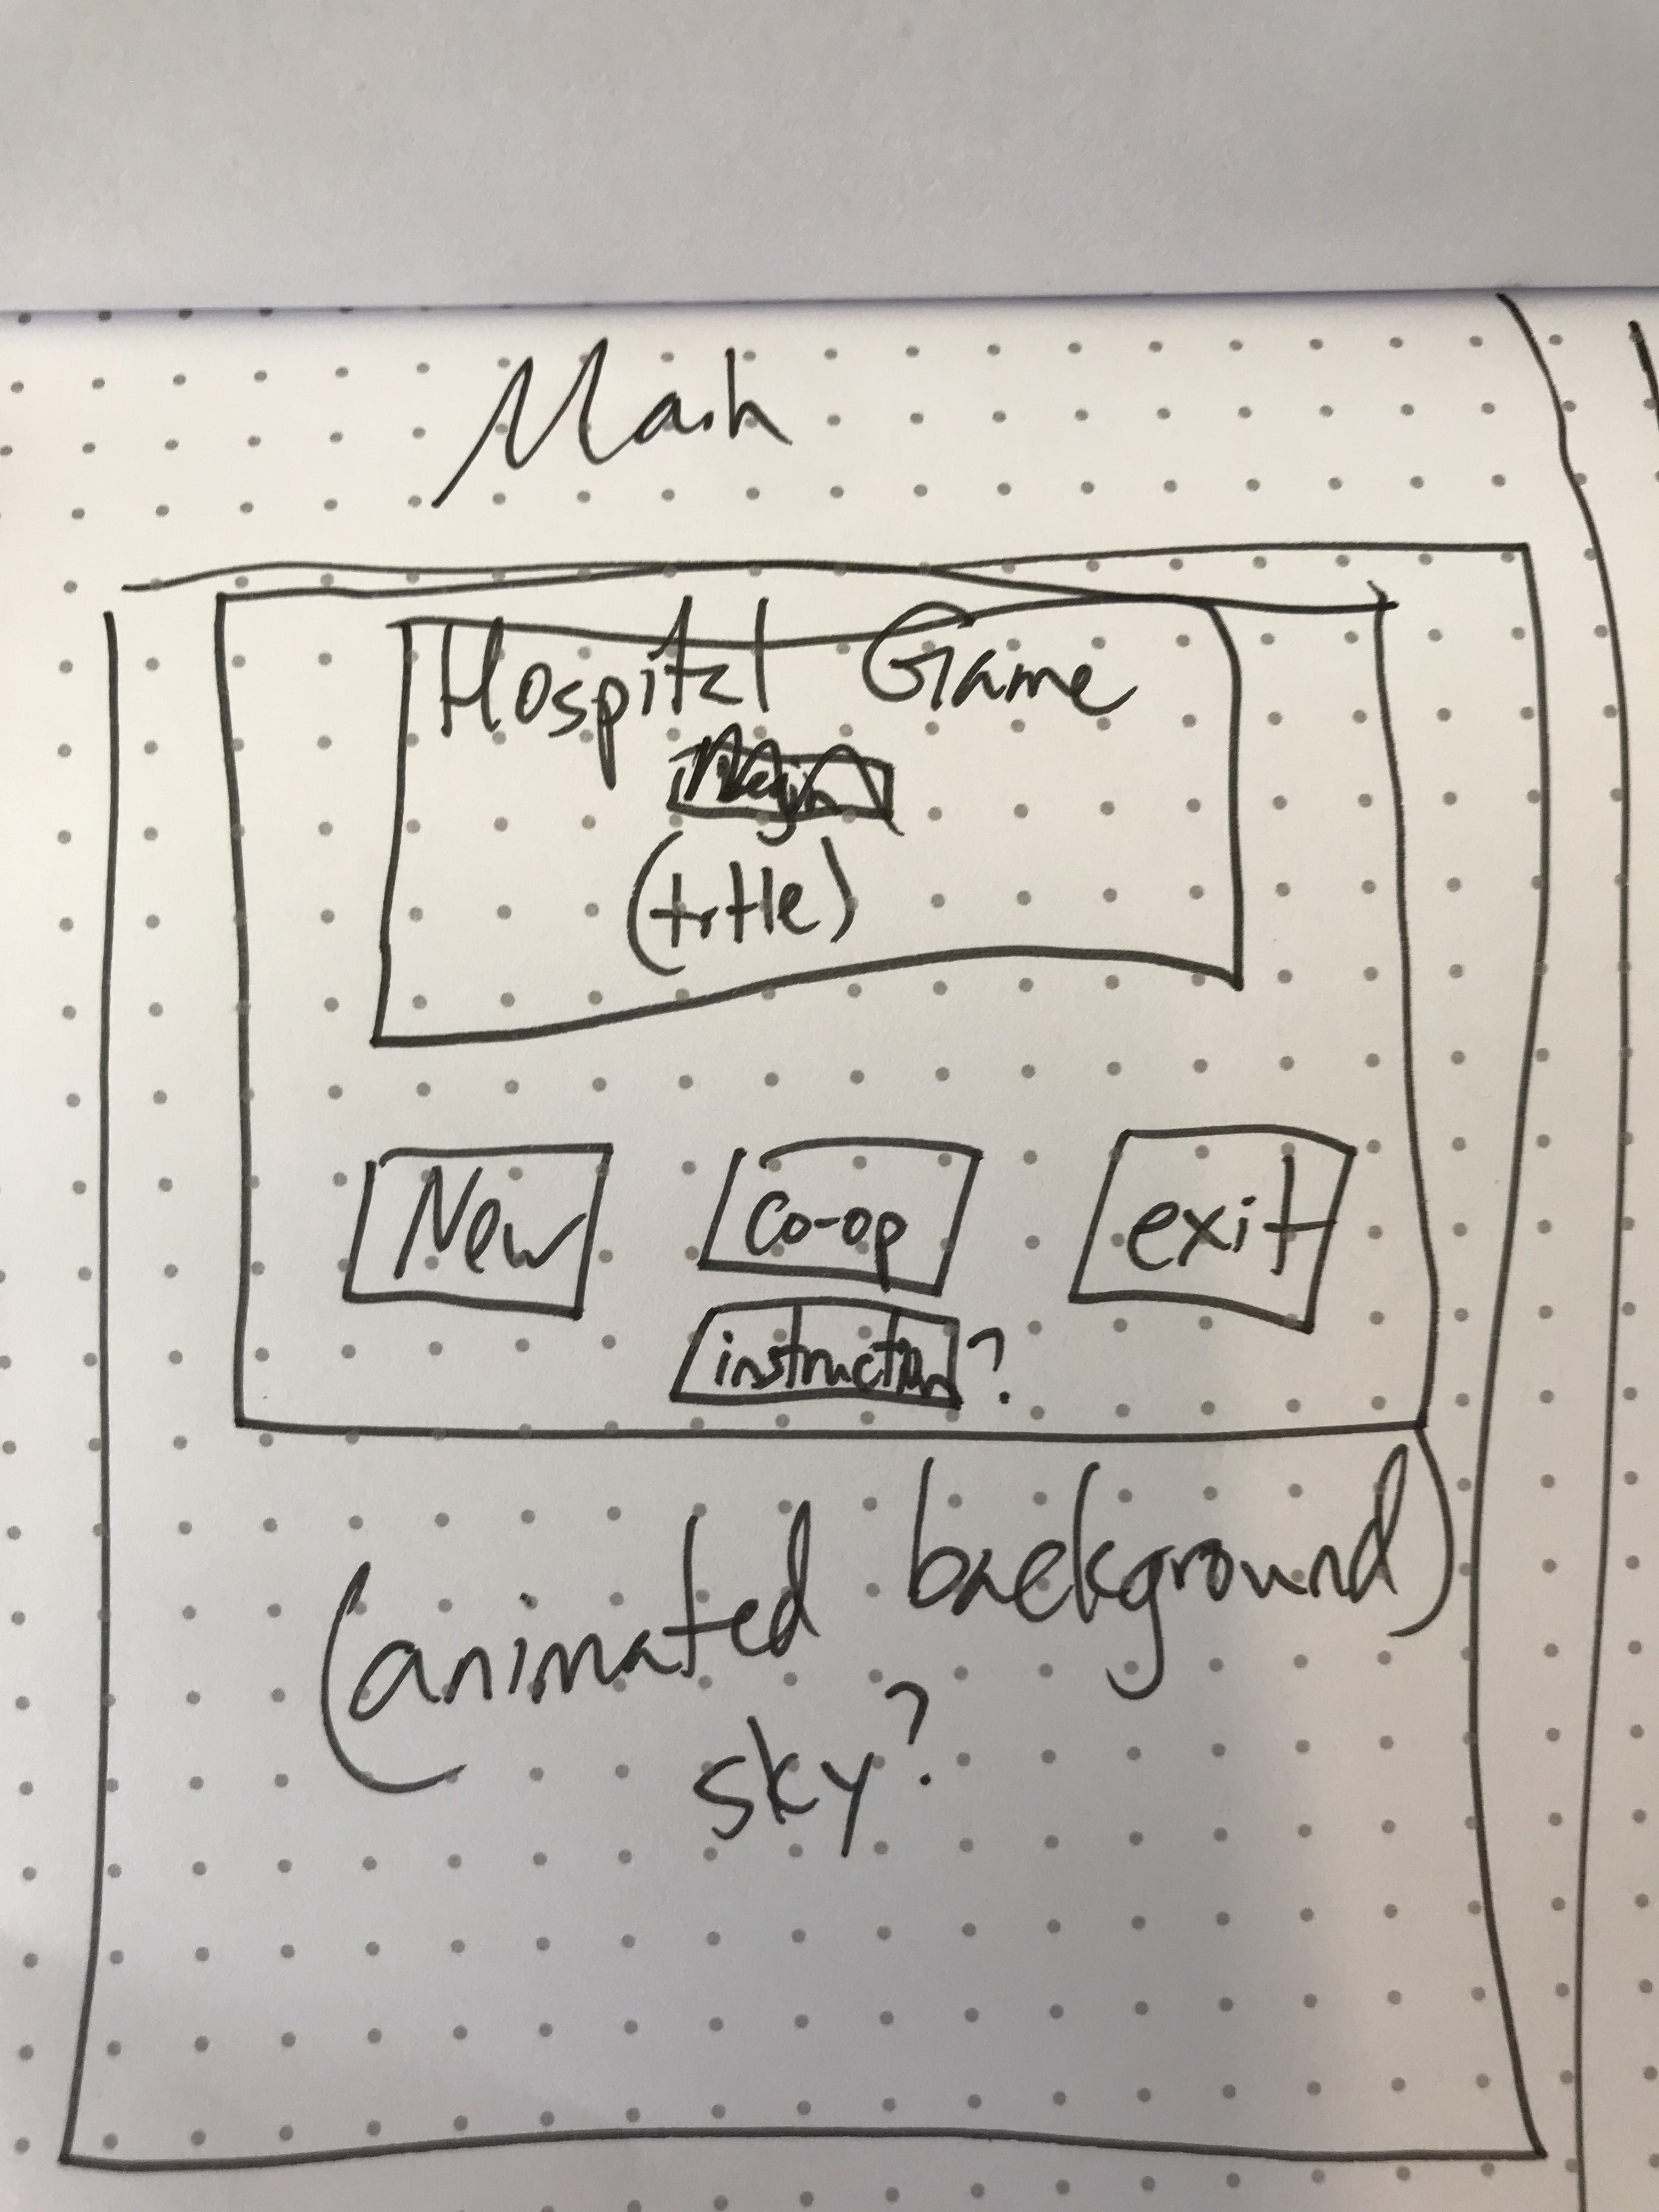 Hospital Game
(title)
New
co-op
exit
instruction?
(animated background)
sky?